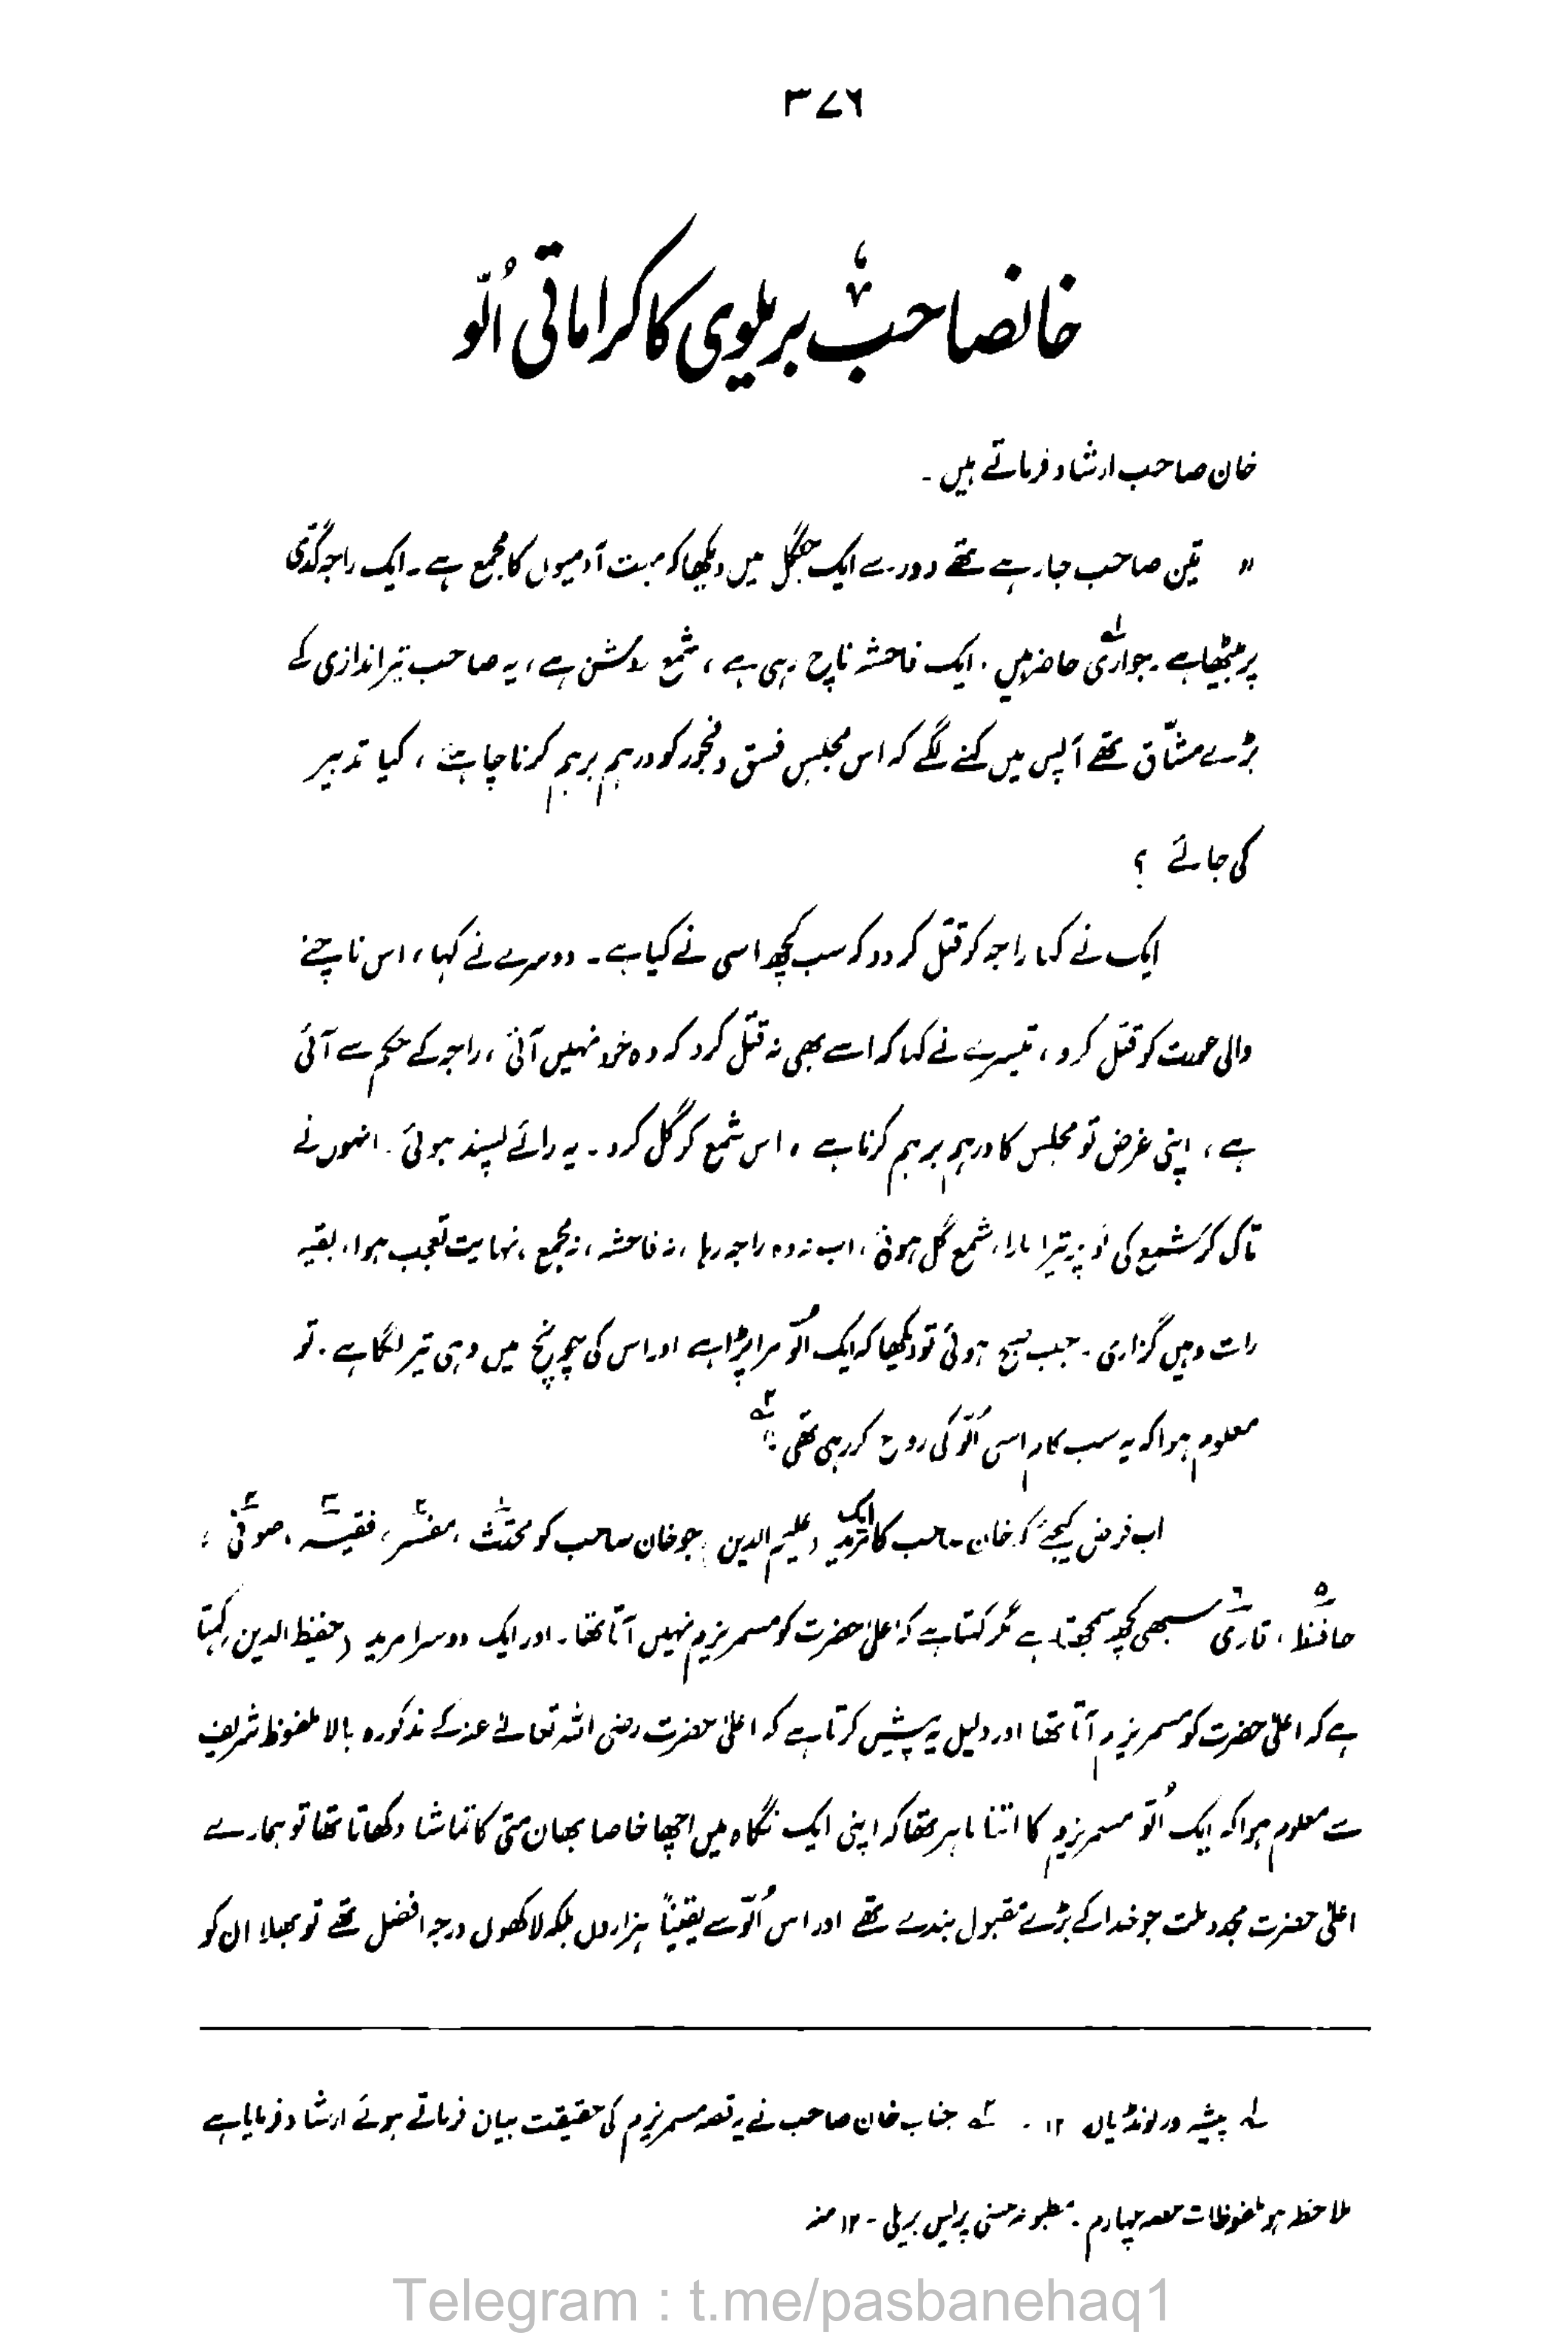 ۳۷۶
خانصاحب بریلوی کا کراماتی اُلّو
خان صاحب ارشاد فرماتے ہیں ۔
" تین صاحب جا رہے تھے دور سے ایک جنگل میں دیکھا کہ بہت آدمیوں کا مجمع ہے ۔ ایک راجہ گدّی
پر بیٹھا ہے ۔ حواری حاضر ہیں ۔ ایک فاحشہ ناچ رہی ہے ، شمع روشن ہے ، یہ صاحب تیر اندازی کے
بڑے مشّاق تھے آپس میں کہنے لگے کہ اس مجلس فسق و فجور کو درہم برہم کرنا چاہئے ، کیا تدبیر
کی جائے ؟
ایک نے کہا راجہ کو قتل کر دو کہ سب کچھ اسی نے کیا ہے ۔ دوسرے نے کہا ، اس ناچنے
والی عورت کو قتل کرو ، تیسرے نے کہا کہ اسے بھی نہ قتل کرو کہ وہ خود نہیں آئی ، راجہ کے حکم سے آئی
ہے ، اپنی غرض تو مجلس کا درہم برہم کرنا ہے ، اس شمع کو گل کرو ۔ یہ رائے پسند ہوئی ۔ انہوں نے
تاک کر شمع کی لَو پر تیر مارا ، شمع گل ہوئی ، اب نہ وہ راجہ رہا ، نہ فاحشہ ، نہ مجمع ، نہایت تعجب ہوا ، بقیہ
رات وہیں گزاری ۔ جب صبح ہوئی تو دیکھا کہ ایک اُلّو مرا پڑا ہے اور اس کی چونچ میں وہی تیر لگا ہے ۔ تو
معلوم ہوا کہ یہ سب کام اسی اُلّو کی روح کر رہی تھی ۔" ۲ے
اب فرض کیجئے کہ خان صاحب کا ایک مرید (علیم الدین) جو خان صاحب کو محدّث۱ ، مفسّر۲ ، فقیہہ۳ ، صوفی۴ ،
حافظ۵ ، قاری۶ سبھی کچھ سمجھتا ہے مگر کہتا ہے کہ اعلیٰ حضرت کو مسمریزم نہیں آتا تھا ۔ اور ایک دوسرا مرید (حفیظ الدین) کہتا
ہے کہ اعلیٰ حضرت کو مسمریزم آتا تھا اور دلیل یہ پیش کرتا ہے کہ اعلیٰ حضرت رضی اللہ تعالےٰ عنہ کے مذکورہ بالا ملفوظ شریف
سے معلوم ہوا کہ ایک اُلّو مسمریزم کا اتنا ماہر تھا کہ اپنی ایک نگاہ میں اچھا خاصا بھان متی کا تماشا دکھاتا تھا تو ہمارے
اعلیٰ حضرت مجدد ملت جو خدا کے بڑے مقبول بندے تھے اور اس اُلّو سے یقیناً ہزاروں بلکہ لاکھوں درجہ افضل تھے تو بھلا ان کو
۱ے پیشہ ور لونڈیاں ۱۲ ۔ ۲ے جناب خان صاحب نے یہ قصہ مسمریزم کی حقیقت بیان فرماتے ہوئے ارشاد فرمایا ہے
ملاحظہ ہو ملفوظات حصہ چہارم ۔ مطبوعہ حسنی پریس بریلی - ۱۲ منہ
Telegram : t.me/pasbanehaq1